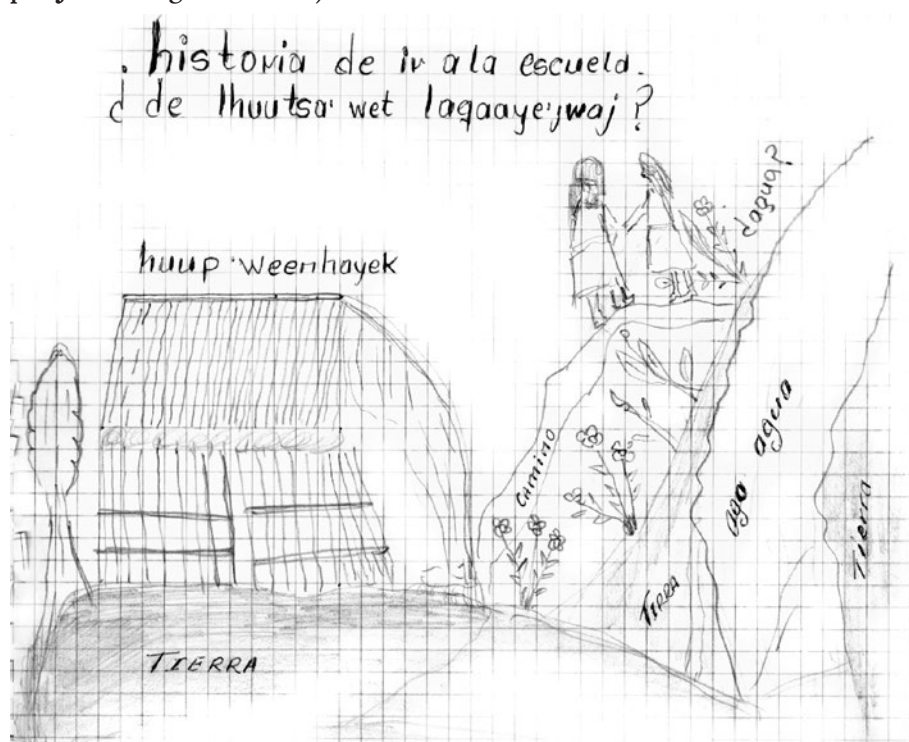 . historia de ir ala escuela.
¿ de lhuutsa' wet laqaaye'jwaj ?
huup weenhayek
¿agua?
Camino
ago agua
Tierra
TIRRA
TIERRA